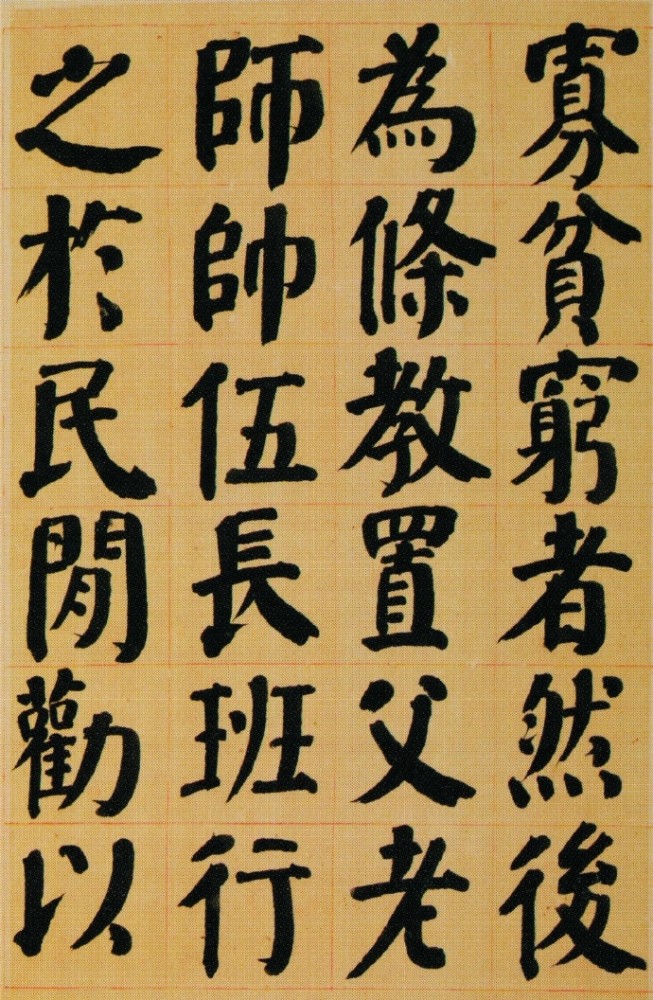 寡貧窮者然後
為條教置父老
師帥伍長班行
之於民閒勸以